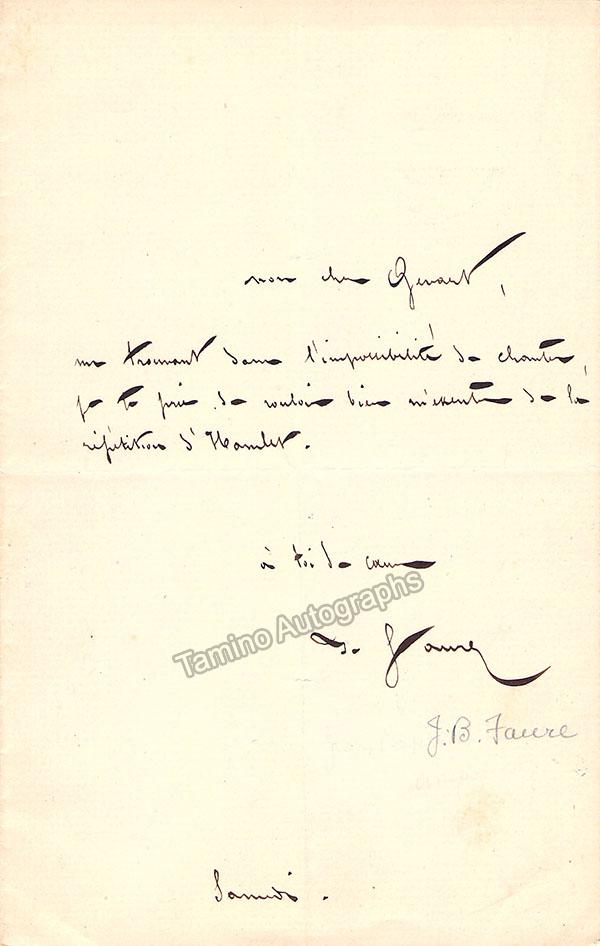 mon cher Gevaert,
me trouvant dans l'impossibilité de chanter,
je te prie de vouloir bien m'exempter de la
répétition d'Hamlet.
à toi de cœur
Tamino Autographs
Faure
J.B. Faure
Samedi.